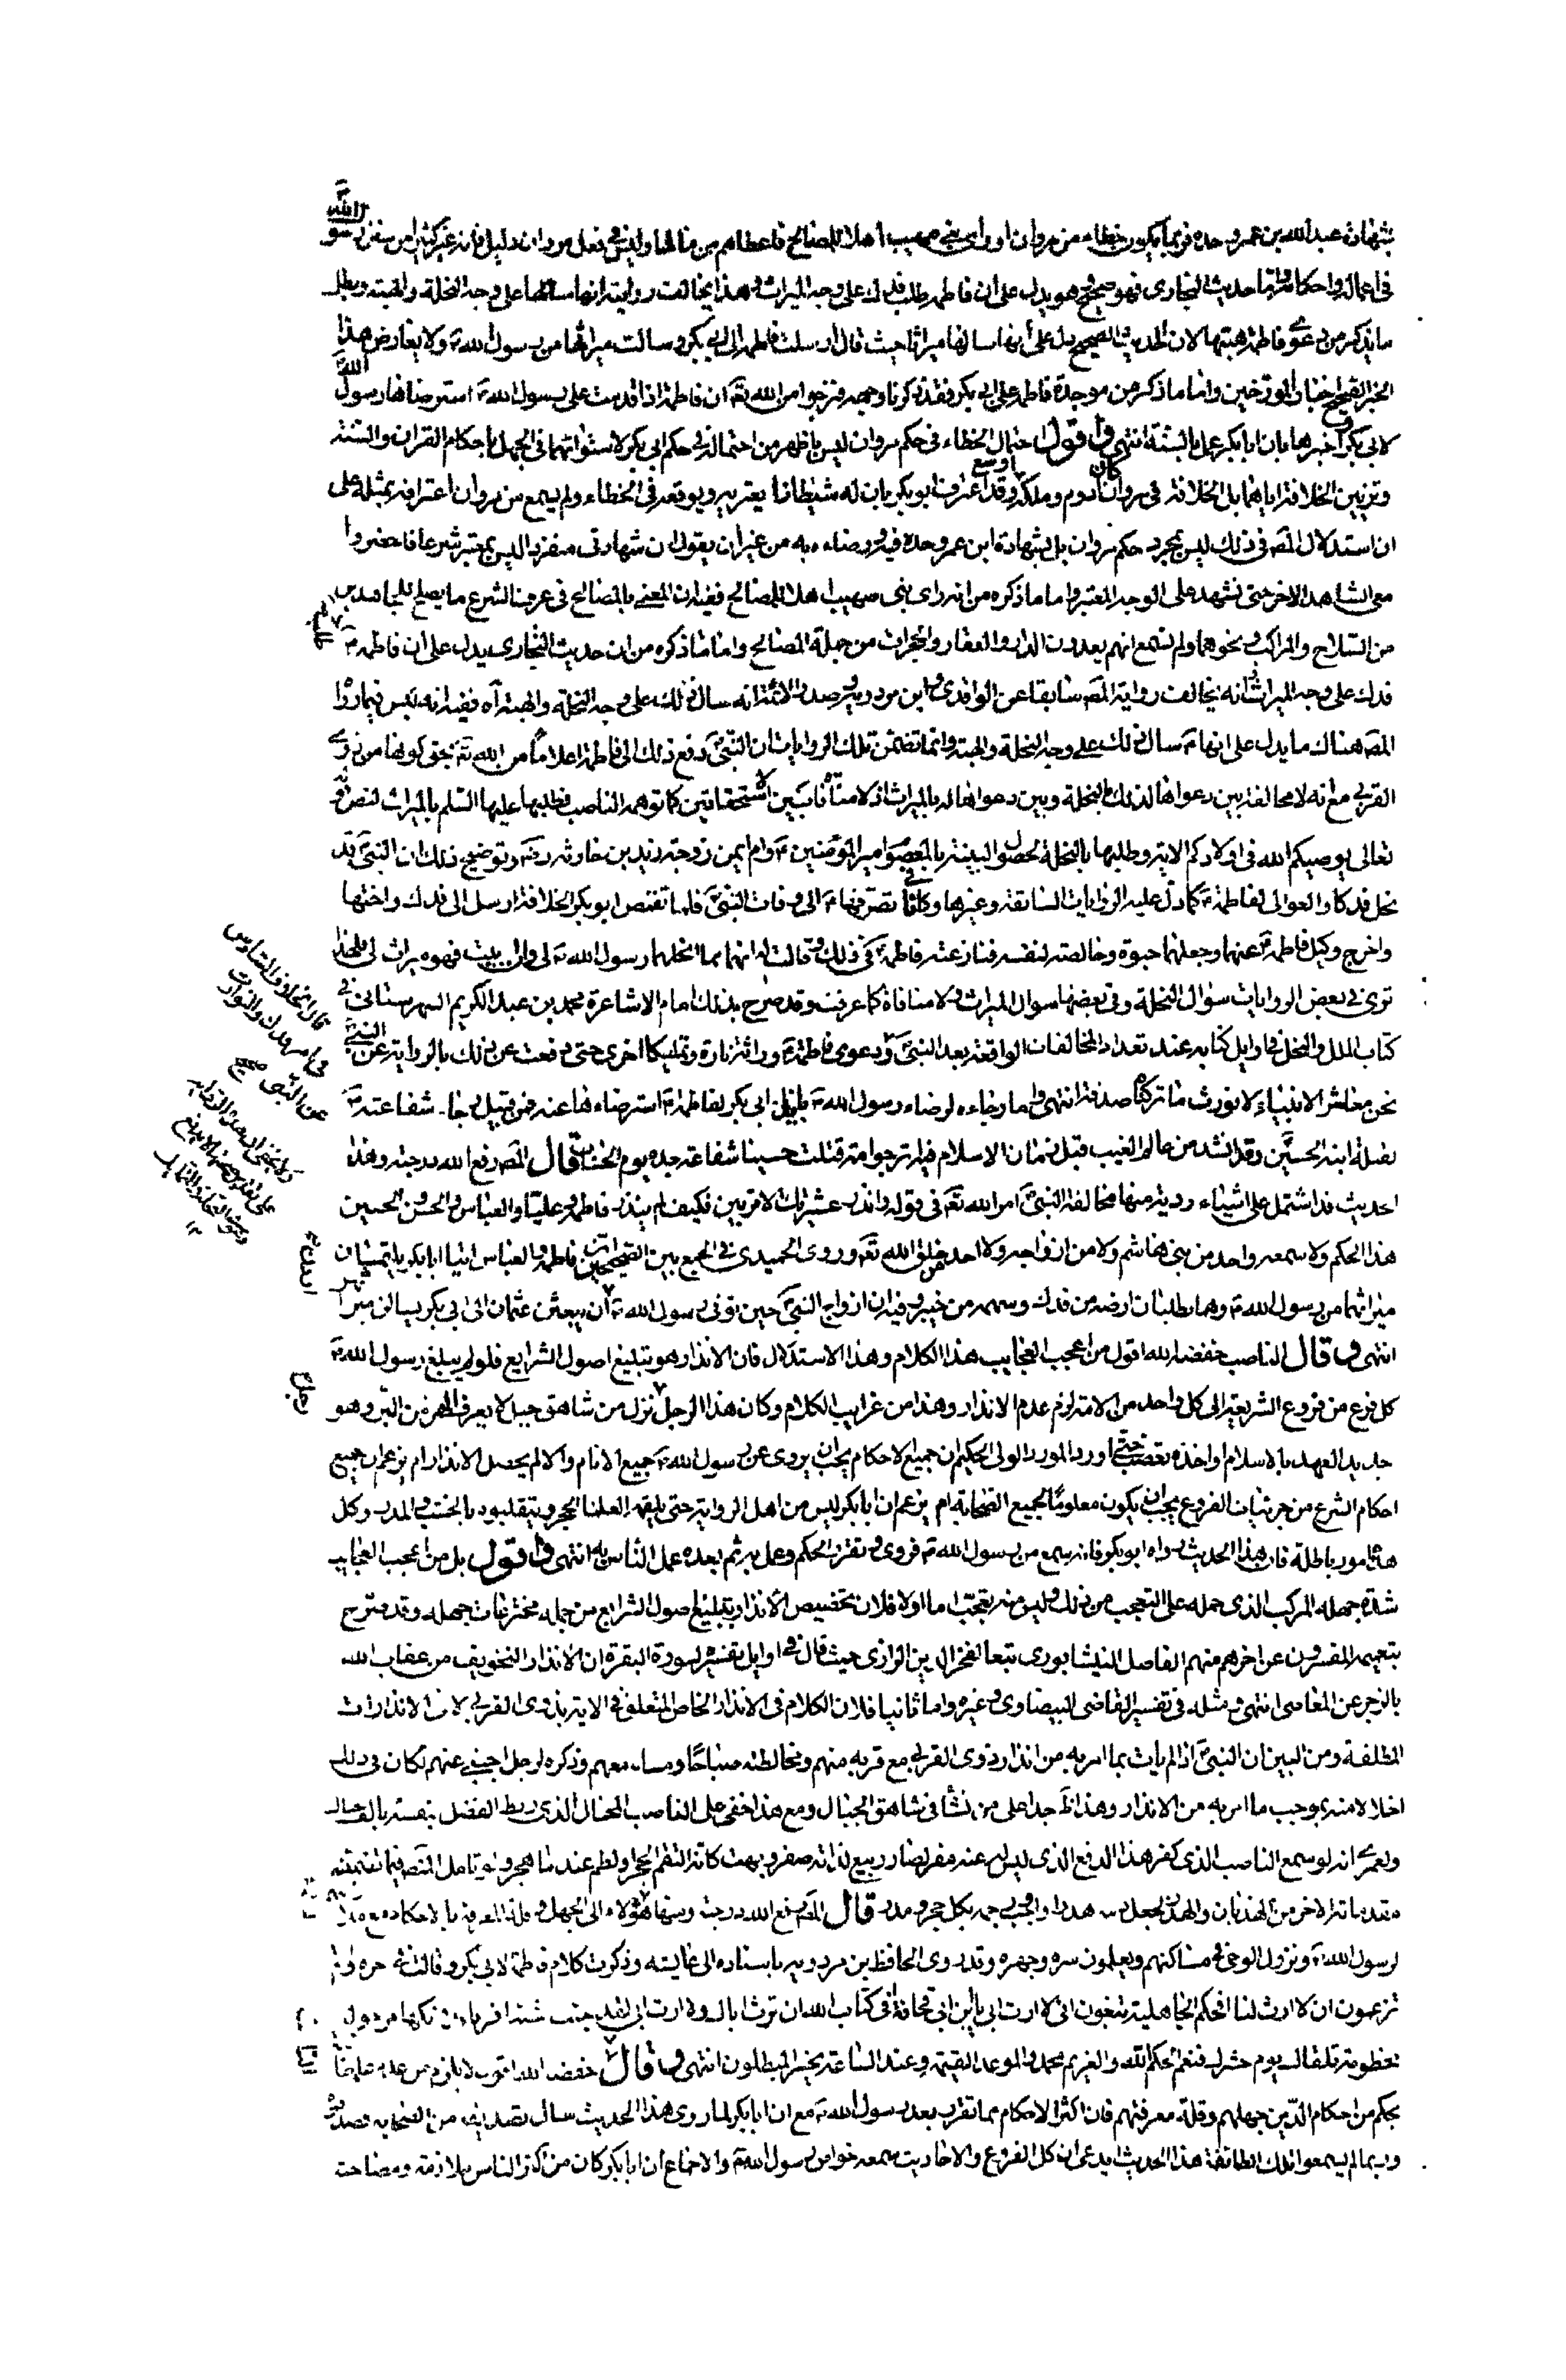 شهادة عبدالله بن عمر وحده فربما يكون خطاء من مروان او رأى بني صهيب اهلا للمصالح فاعطاهم من مالها وليس في فعل مروان دليل فانه غير كثيرا من سنن رسول الله
في اعماله واحكامه واما حديث البخاري فهو صحيح وهو يدل على ان فاطمة طلب فدك على وجه الميراث وهذا يخالف رواية انها سالتها على وجه النحلة والهبة ويبطل
ما يذكر من دعوى فاطمة هبتها لان الحديث الصحيح دل على أنها سالها ميراثا حيث قال ارسلت فاطمة الى ابي بكر وسالت ميراثها من رسول الله ص ولا يعارض هذا
الخبر الصحيح اخبار المورخين واما ما ذكر من موجدة فاطمة على ابي بكر فقد ذكرنا وجهه ونرجو من الله تعالى ان فاطمة اذا قدمت على رسول الله ص استرضاها رسول الله
لابي بكر واخبرها بان ابا بكر عمل بالسنة انتهى واقول احتمال الخطاء في حكم مروان ليس باظهر من احتماله في حكم ابي بكر لاستوائهما في الجهل باحكام القران والسنة
وتزيين الخلافة اياهما بل الخلافة في مروان كان ادوم وملكه اوسع وقد اعترف ابو بكر بان له شيطانا يعتريه ويوقعه في الخطاء ولم يسمع من مروان اعترافه بمثله على
ان استدلال المصـ في ذلك ليس بمجرد حكم مروان بل بشهادة ابن عمر وحده فيه ورضاءه به من غير ان يقول ان شهادتي منفردا ليس بمعتبر شرعا فاحضروا
معي الشاهد الاخر حتى نشهد على الوجه المعتبر واما ما ذكره من انه راى بني صهيب اهلا للمصالح ففيه ان المعني بالمصالح في عرف الشرع ما يصلح للمجاهدين
من السلاح والمراكب ونحوهما ولم نسمع انهم يعدون الدار والعقار والحجرات من جملة المصالح واما ما ذكره من ان حديث البخاري يدل على ان فاطمة ع طلب
فدك على وجه الميراث وانه يخالف رواية المصـ سابقا عن الواقدي وابن مردويه وصدر الائمة انه سال ذلك على وجه النحلة والهبة آه ففيه انه ليس فيما روا
المصـ هناك ما يدل على انها ع سال ذلك على وجه النحلة والهبة وانما تضمن تلك الروايات ان النبي ص دفع ذلك الى فاطمة اعلاما من الله تعالى بحق كونها من ذوي
القربى مع انه لا مخالفة بين دعواها لذلك بالنحلة وبين دعواها له بالميراث اذ لا منافاة بين الاستحقاقين كما توهمه الناصب فطلبها عليها السلم بالميراث لنص قوله
تعالى يوصيكم الله في اولادكم الاية وطلبها بالنحلة لحصول البينة بالمعصوم امير المؤمنين ع وام ايمن زوجة زيد بن حارثة رضه وتوضيح ذلك ان النبي ص قد
نحل فدكا والعوالي لفاطمة ع كما دل عليه الروايات السابقة وغيرها وكانا في تصرفها ع الى وفات النبي ص فلما تقمص ابو بكر الخلافة ارسل الى فدك واختها
واخرج وكيل فاطمة ع عنها وجعلهما حبوة وخالصة لنفسه فنازعته فاطمة ع في ذلك وقالت له انهما مما انحلهما رسول الله ص لي وان ابيت فهو ميراث لي فلهذا
ترى في بعض الروايات سؤال النحلة وفي بعضها سوال الميراث ولا منافاة كما عرفت وقد صرح بذلك امام الاشاعرة محمد بن عبد الكريم الشهرستاني في
كتاب الملل والنحل في اوايل كتابه عند تعداد المخالفات الواقعة بعد النبي ص ودعوى فاطمة ع وراثة تارة وتمليكا اخرى حتى دفعت عن ذلك بالرواية عن النبي ص
نحن معاشر الانبياء لا نورث ما تركناه صدقة انتهى واما رجاءه لرضاء رسول الله ص
احديث قد اشتمل على اشياء ردية منها مخالفة النبي ص امر الله تعالى في قوله وانذر عشيرتك الاقربين فكيف لم ينذر فاطمة وعليا والعباس والحسن والحسين
هذا الحكم ولا سمعه واحد من بني هاشم ولا من ازواجه ولا احد من خلق الله تعالى وروى الحميدي في الجمع بين الصحيحين ان فاطمة والعباس اتيا ابا بكر يلتمسان
ميراثهما من رسول الله ص وهما يطلبان ارضه من فدك وسهمه من خيبر وفيه ان ازواج النبي ص حين توفى رسول الله ص اردن ان يبعثن عثمان الى ابي بكر يسالن ميراثهن
انتهى وقال الناصب خفضه الله اقول من اعجب العجايب هذا الكلام وهذا الاستدلال فان الانذار هو بتبليغ اصول الشرايع فلو لم يبلغ رسول الله ص
كل فرع من فروع الشريعة الى كل واحد من الامة لزم عدم الانذار وهذا من غرايب الكلام وكان هذا الرجل نزل من شاهق جبل لا يعرف الهر من البر وهو
جديد العهد بالاسلام واخذه تعصب حتى اورد المورد اولى الحكم ان جميع الاحكام يجب ان يروى عن رسول الله ص جميع الانام والا لم يحصل الانذار ام يزعم ان جميع
احكام الشرع من جزئيات الفروع يجب ان يكون معلوما لجميع الصحابة ام يزعم ان ابا بكر ليس من اهل الرواية حتى يلقمه العلماء الحجر ويتقبلوه بالخشب والمدر وكل
هذه امور باطلة فان هذا الحديث رواه ابو بكر فانه سمع من رسول الله ص فروى وتقرر الحكم وعمل به ثم بعده عمل الناس به انتهى واقول بل من اعجب العجايب
شدة جهله المركب الذي حمله على التعجب من ذلك وليس منه بعجب اما اولا فلان تخصيص الانذار بتبليغ اصول الشرايع من جمله مخترعات جهله وقد صرح
بتعميمه المفسرون عن اخرهم منهم الفاضل النيشابوري تبعا لفخر الدين الرازي حيث قال في اوايل تفسير لسورة البقرة ان الانذار التخويف من عقاب الله
بالزجر عن المعاصي انتهى ومثله في تفسير القاضي البيضاوي وغيره واما ثانيا فلان الكلام في الانذار الخاص المتعلق في الاية بذوي القربى لا في الانذارات
المطلقة ومن البين ان النبي ص اذا لم يات بما امر به من انذار ذوي القربى مع قربه منهم ومخالطته صباحا ومساء معهم وذكره لرجل اجنبي عنهم لكان في ذلك
اخلالا منه بموجب ما امر به من الانذار وهذا ظاهر جدا على من نشأ في شاهق الجبال ومع هذا خفي على الناصب المحتال الذي ربط الفضل بنفسه بالحبال
ولعمري انه لو سمع الناصب الذي كفر هذا الدفع الذي ليس له عنه مفر لصار ربيع لذاته صفر وبهت كانه التقم الحجر
قال المصـ رفع الله درجته وسفها هؤلاء الى الجهل وقلة المعرفة بالاحكام مع ملازمتهم
لرسول الله ص ونزول الوحي في مساكنهم ويعلمون سره وجهره وقد روى الحافظ بن مردويه باسناده الى عايشه وذكرت كلام فاطمة لابي بكر وقالت في اخره وانتم
تزعمون ان لا ارث لنا افحكم الجاهلية تبغون اني لا ارث ابي يا ابن ابي قحافة افي كتاب الله ان ترث اباك ولا ارث ابي لقد جئت شيئا فريا
مخطومة تلقاك يوم حشرك فنعم الحكم الله والغريم محمد والموعد القيمة وعند الساعة يخسر المبطلون انتهى وقال خفضه الله اقول لا يلزم من عدم علمهما
بحكم من احكام الدين جهلهم وقلة معرفتهم فان اكثر الاحكام مما تقرر بعد رسول الله ص مع ان ابا بكر لما روى هذا الحديث سال تصديقه من الصحابه فصدقوه
وربما لم يسمعوا تلك الطائفة هذا الحديث ايدعى ان كل الفروع والاحاديث سمعه خواص رسول الله ص والاجماع ان ابا بكر كان من اكثر الناس ملازمة ومصاحبة